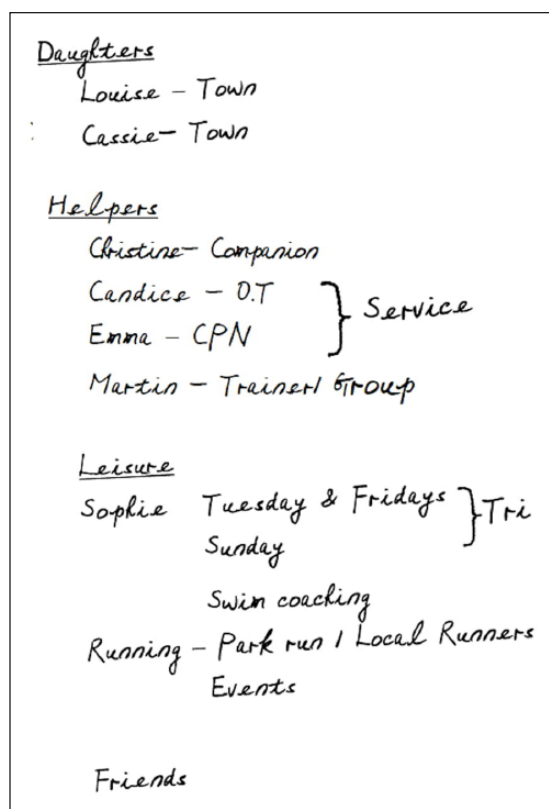 Daughters
Louise – Town
Cassie – Town
Helpers
Christine – Companion
Candice – O.T
Emma – CPN
} Service
Martin – Trainer/ Group
Leisure
Sophie Tuesday & Fridays
Sunday
} Tri
Swim coaching
Running – Park run / Local Runners
Events
Friends